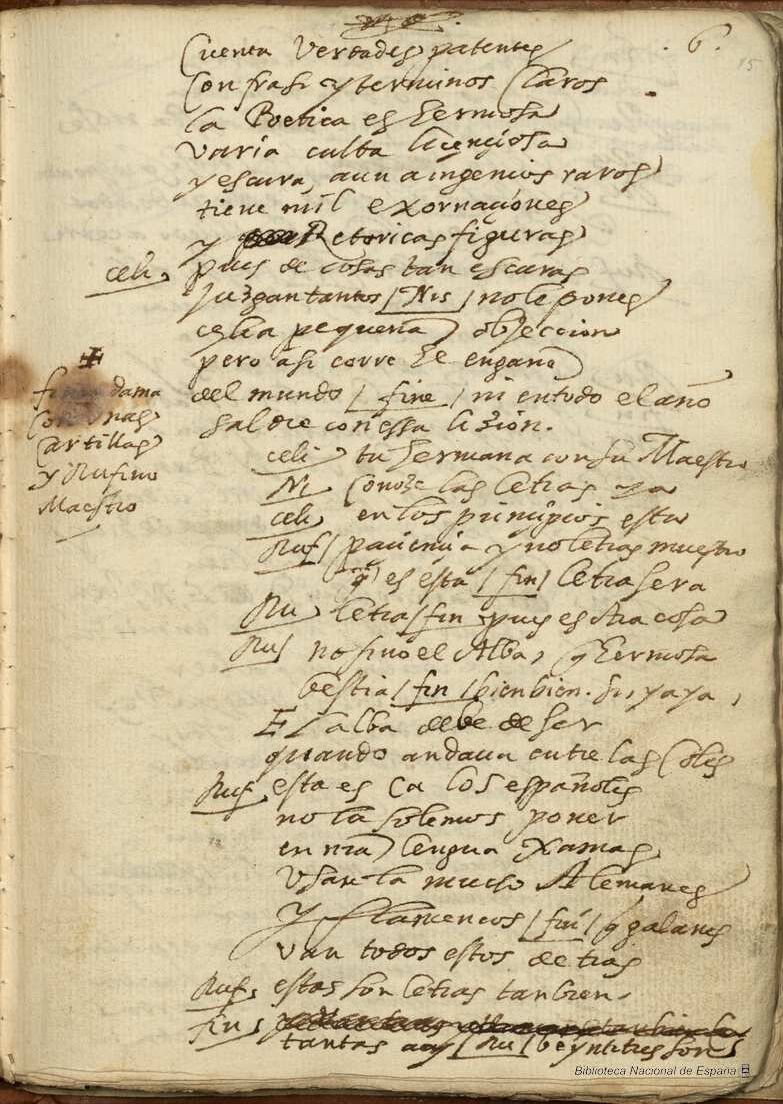 .6.
15
Cuenta verdades patentes
Con frasi y terminos claros
la Poetica es hermosa
varia culta licençiosa
y escura, aun a ingenios raros
tiene mil exornaçiones
y Retoricas figuras
celi, pues de cosas tan escuras
Juzgan tantos / Nis / no le pones
celia pequeña objeccion
pero asi corre el engano
del mundo / fine / ni en todo el año
saldre con essa lizion.
✠
dama
con unas
Cartillas
y Rufino
Maestro
celi, tu hermana con su Maestro
Ni, Conoze las letras ya
celi, en los prinçipios esta
Ruf / paciencia y no letras muestro
q es esta / fin / letra sera
Ru, letra / fin pues es otra cosa
Ruf no sino el Alba, q hermosa
bestia / fin / bien bien. si, ya ya,
El alba debe de ser
quando andava entre las Coles
Ruf, esta es Ca los españoles
no la solemos poner
en nra lengua xamas
Usanla mucho Alemanes
y flamencos / fin / q galanes
van todos estos detras
Ruf, estas son letras tanbien.
fin,
tantas ay / Ru / beyntitres son
Biblioteca Nacional de España